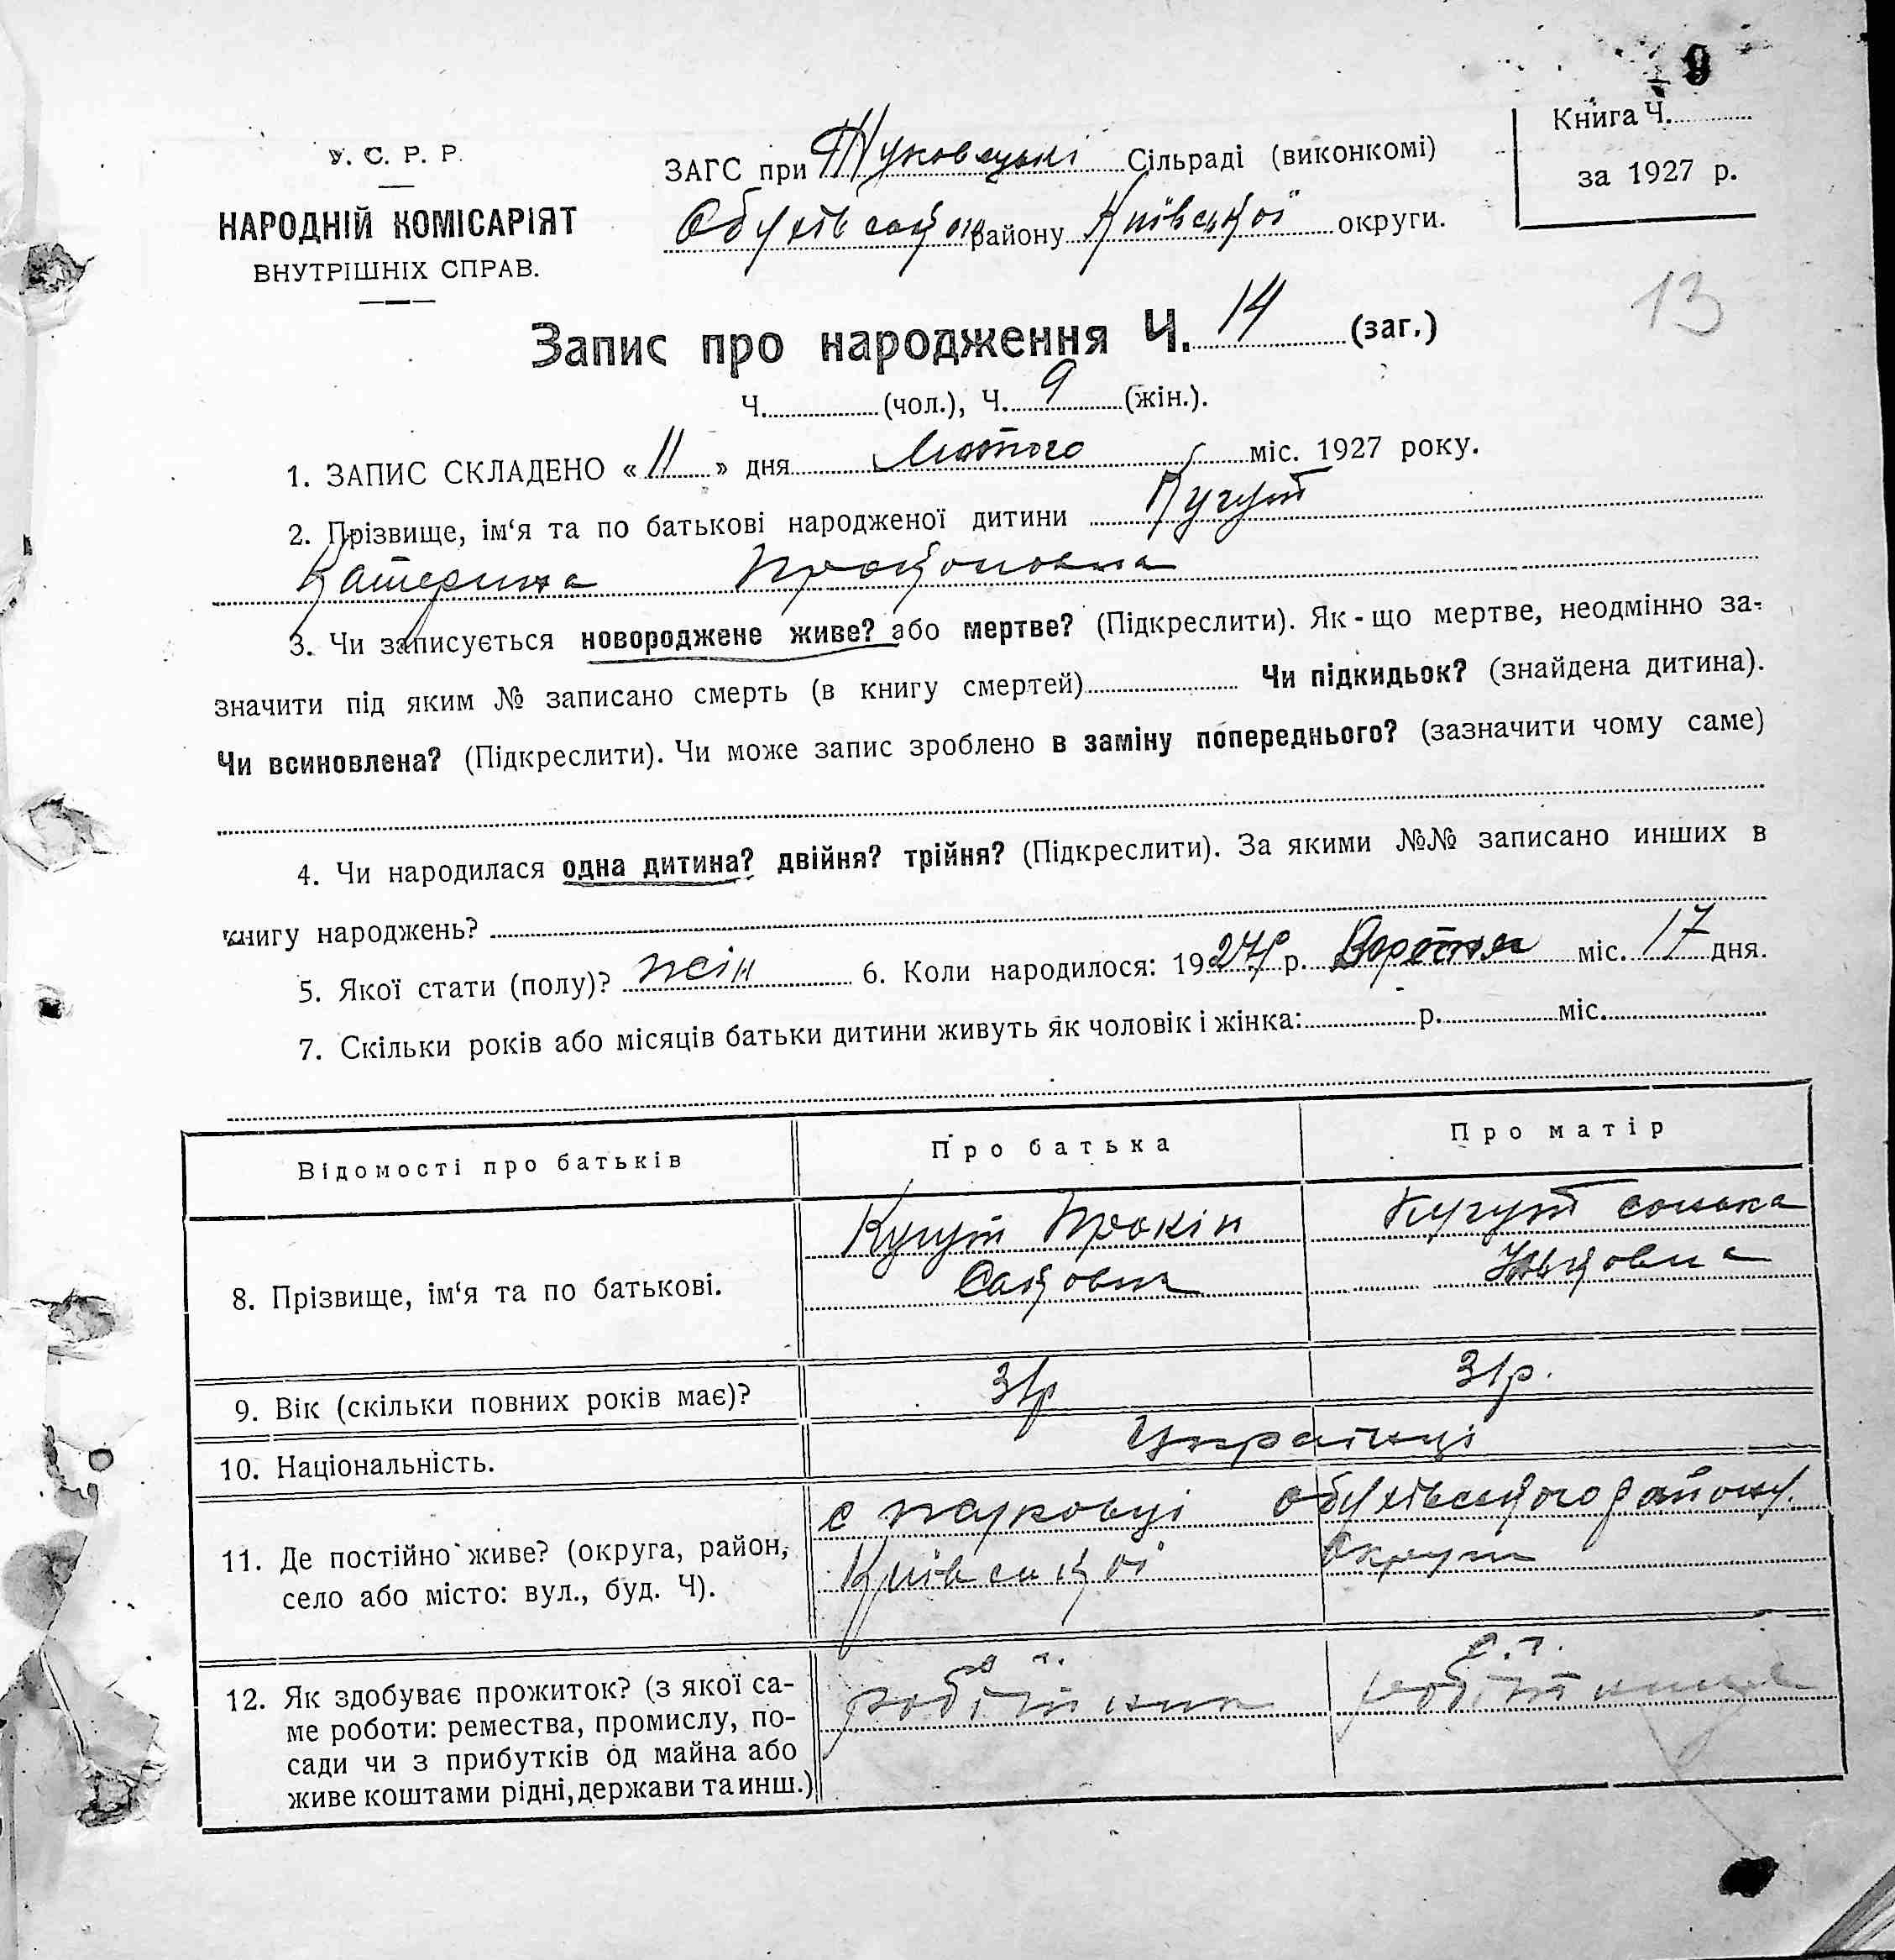 9
Книга Ч.
за 1927 р.
13
У. С. Р. Р.
НАРОДНІЙ КОМІСАРІЯТ
ВНУТРІШНІХ СПРАВ.
ЗАГС при Жуковецькі Сільраді (виконкомі)
району Київської округи.
Запис про народження Ч. 14 (заг.)
Ч. (чол.), Ч. 9 (жін.).
1. ЗАПИС СКЛАДЕНО « 11 » дня Лютого міс. 1927 року.
2. Прізвище, ім‘я та по батькові народженої дитини Кугут
Катерина Прокоповна
3. Чи записується новороджене живе? або мертве? (Підкреслити). Як - що мертве, неодмінно за-
значити під яким № записано смерть (в книгу смертей) Чи підкидьок? (знайдена дитина).
Чи всиновлена? (Підкреслити). Чи може запис зроблено в заміну попереднього? (зазначити чому саме)
4. Чи народилася одна дитина? двійня? трійня? (Підкреслити). За якими №№ записано инших в
книгу народжень?
5. Якої стати (полу)? жін 6. Коли народилося: 1927р р. міс. 17 дня.
7. Скільки років або місяців батьки дитини живуть як чоловік і жінка: р. міс.
Відомості про батьків Про батька Про матір
8. Прізвище, ім‘я та по батькові.
Кугут Прокіп Кугут
9. Вік (скільки повних років має)? 31р 31р.
10. Національність. Українці
11. Де постійно живе? (округа, район,
село або місто: вул., буд. Ч).
с жуковці обухівського району
Київської Округи
12. Як здобуває прожиток? (з якої са-
ме роботи: ремества, промислу, по-
сади чи з прибутків од майна або
живе коштами рідні, держави та инш.)